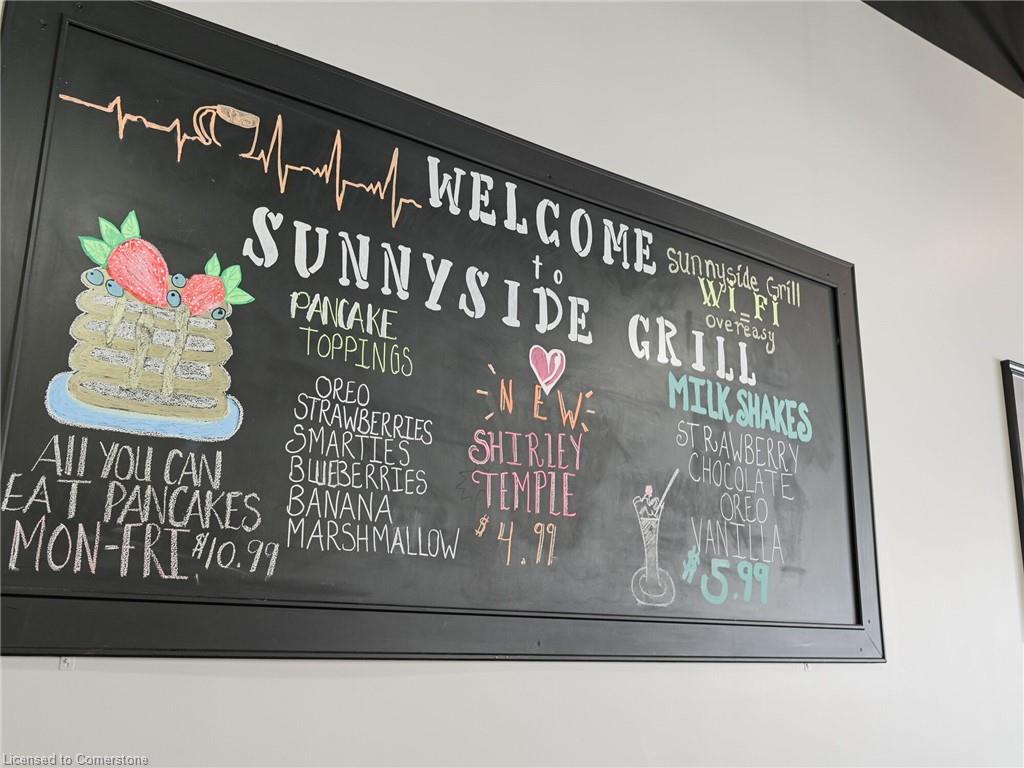 WELCOME
to
SUNNYSIDE GRILL
sunnyside Grill
WI-FI
overeasy
PANCAKE
TOPPINGS
OREO
STRAWBERRIES
SMARTIES
BLUEBERRIES
BANANA
MARSHMALLOW
All YOU CAN
EAT PANCAKES
MON-FRI $10.99
NEW
SHIRLEY
TEMPLE
$4.99
MILKSHAKES
STRAWBERRY
CHOCOLATE
OREO
VANILLA
$5.99
Licensed to Cornerstone